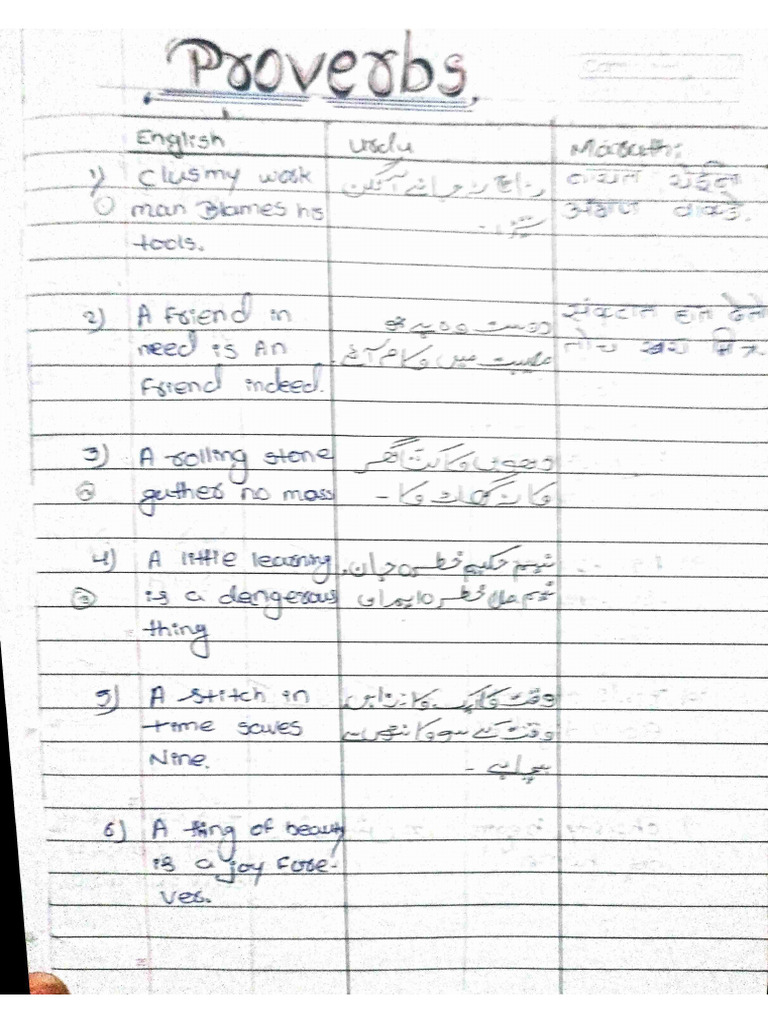 Proverbs.
English
Urdu
Marathi
1) Clusmy work
man Blames his
tools.
ناچ نہ جانے آنگن
ٹیڑا۔
नाचता येईना
अंगण वाकडे.
2) A Friend in
need is An
Friend indeed.
دوست وہ ہے جو
مصیبت میں کام آئے۔
संकटात हात देतो
तोच खरा मित्र.
3) A rolling stone
② gather no mass
دھوبی کا کتا گھر
کا نہ گھاٹ کا۔
4) A little learning
③ is a dengerous
thing
نیم حکیم خطرہ جان،
نیم ملا خطرہ ایمان
5) A stitch in
time saves
Nine.
وقت کا ایک ٹانکا
وقت کے سو ٹانکوں سے
6) A thing of beauty
is a joy fore-
ver.